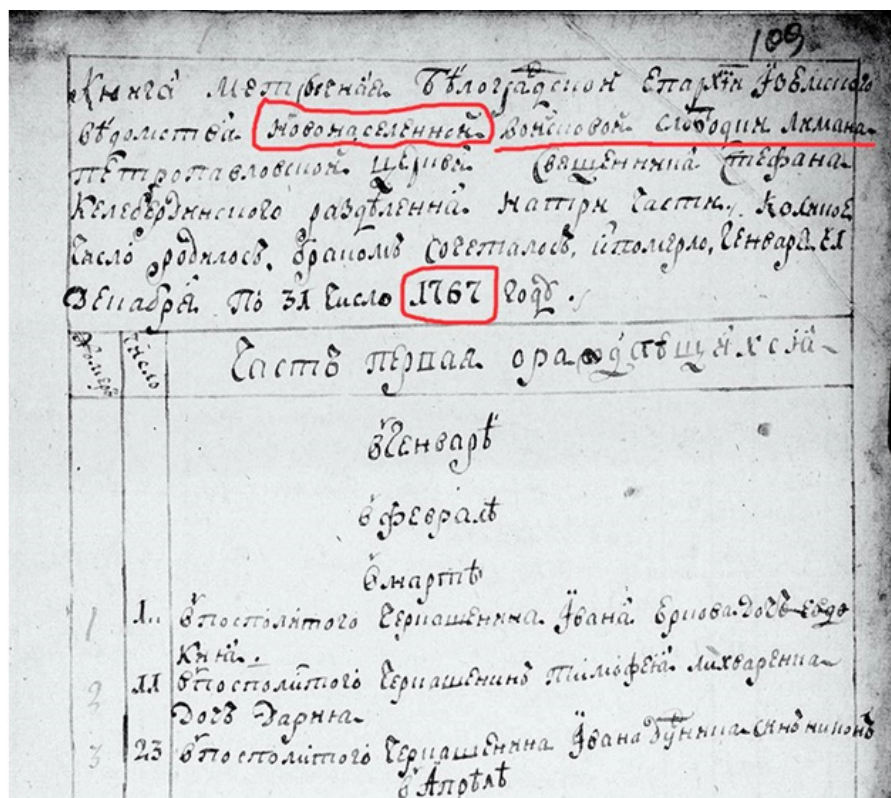 109
Книга метрычная Бѣлоградской Епархіи Изюмского
вѣдомства новонаселенной войсковой слободи Лимана
петропавловской церкви Священника Стефана
Келебердинского раздѣленна на три части, Колико
число родилось, браком сочеталось, и померло, Генваря
Декабря по 31 число 1767 году.
Номеръ
число
Часть первая о раждающихся
в Генварѣ
в февралѣ
в мартѣ
1 посполитого Черкашенина Ивана дочь Евдо
кия.
2 11 в посполитого Черкашенина Тимофея лихваренка
Дочь Дария
3 23 в посполитого Черкашенина Ивана синъ никонъ
в Апрѣлѣ